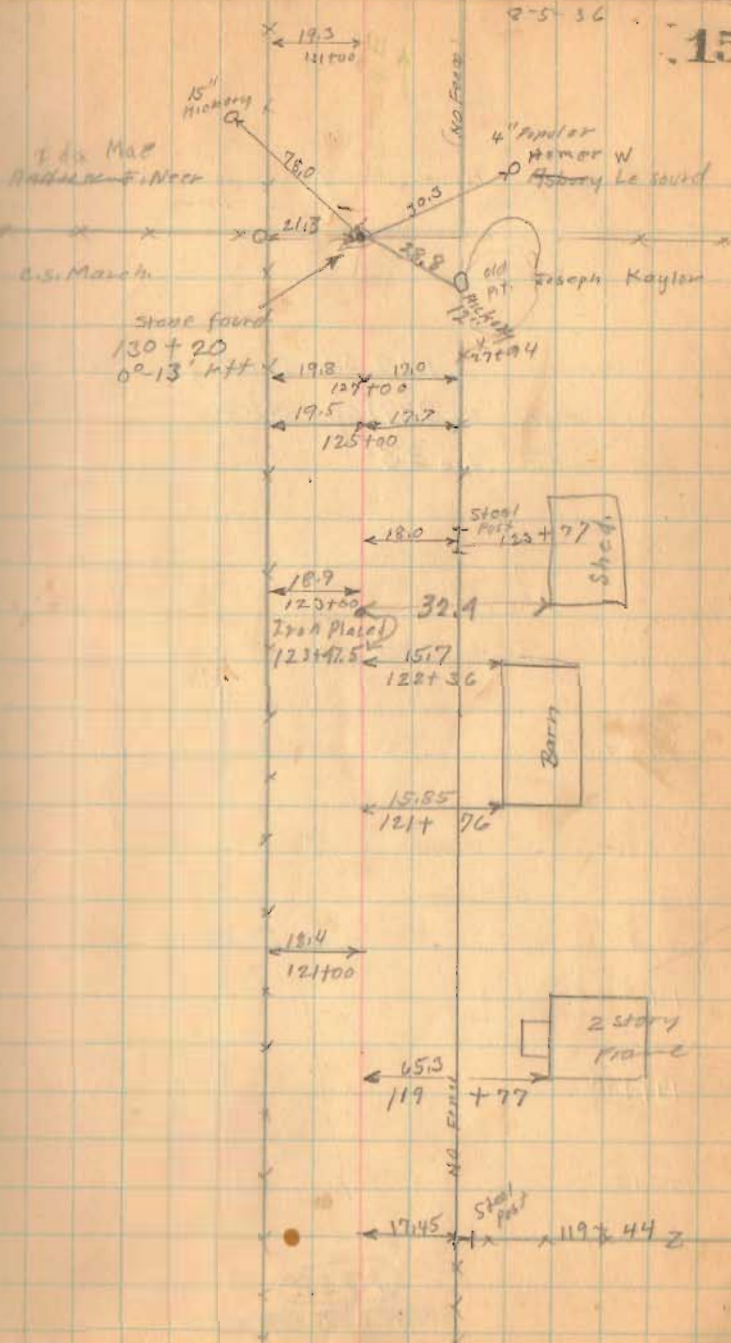 2-5-36
15
19.3
131+00
(NO Fence)
15"
Hickory
4" Popular
Homer W
Asbury Le Sourd
Ida Mae
F. Neer
78.0
30.3
21.3
28.8
old
pit.
Joseph Kaylor
C.S. March
Hickory
12"
Stone found
130+20
0°-13' rtt
127+94
19.8 17.0
127+00
19.5 17.7
125+00
Steel
Post
18.0 123+77
Shed.
18.9
123+00
32.4
Iron Placed
123+47.5
15.7
122+36
Barn
15.85
121+76
18.4
121+00
2 story
Frame
65.3
119+77
NO Fence
Steel
Post
17.45 119+44